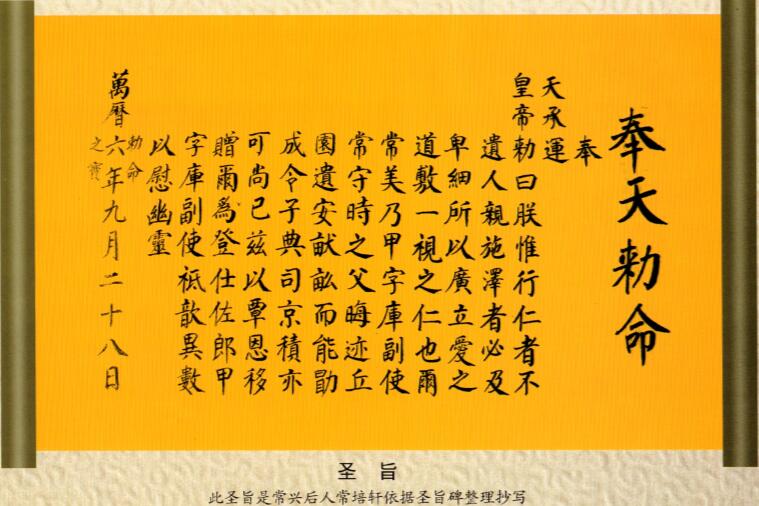 奉天勅命
奉
天承運
皇帝勅曰朕惟行仁者不
遺人親施澤者必及
卑細所以廣立愛之
道敷一視之仁也爾
常美乃甲字庫副使
常守時之父晦迹丘
園遺安献畆而能勖
成令子典司京積亦
可尚已兹以覃恩移
贈爾為登仕佐郎甲
字庫副使祗歆異數
以慰幽靈
勅命
之寳
萬曆六年九月二十八日
圣旨
此圣旨是常兴后人常培轩依据圣旨碑整理抄写